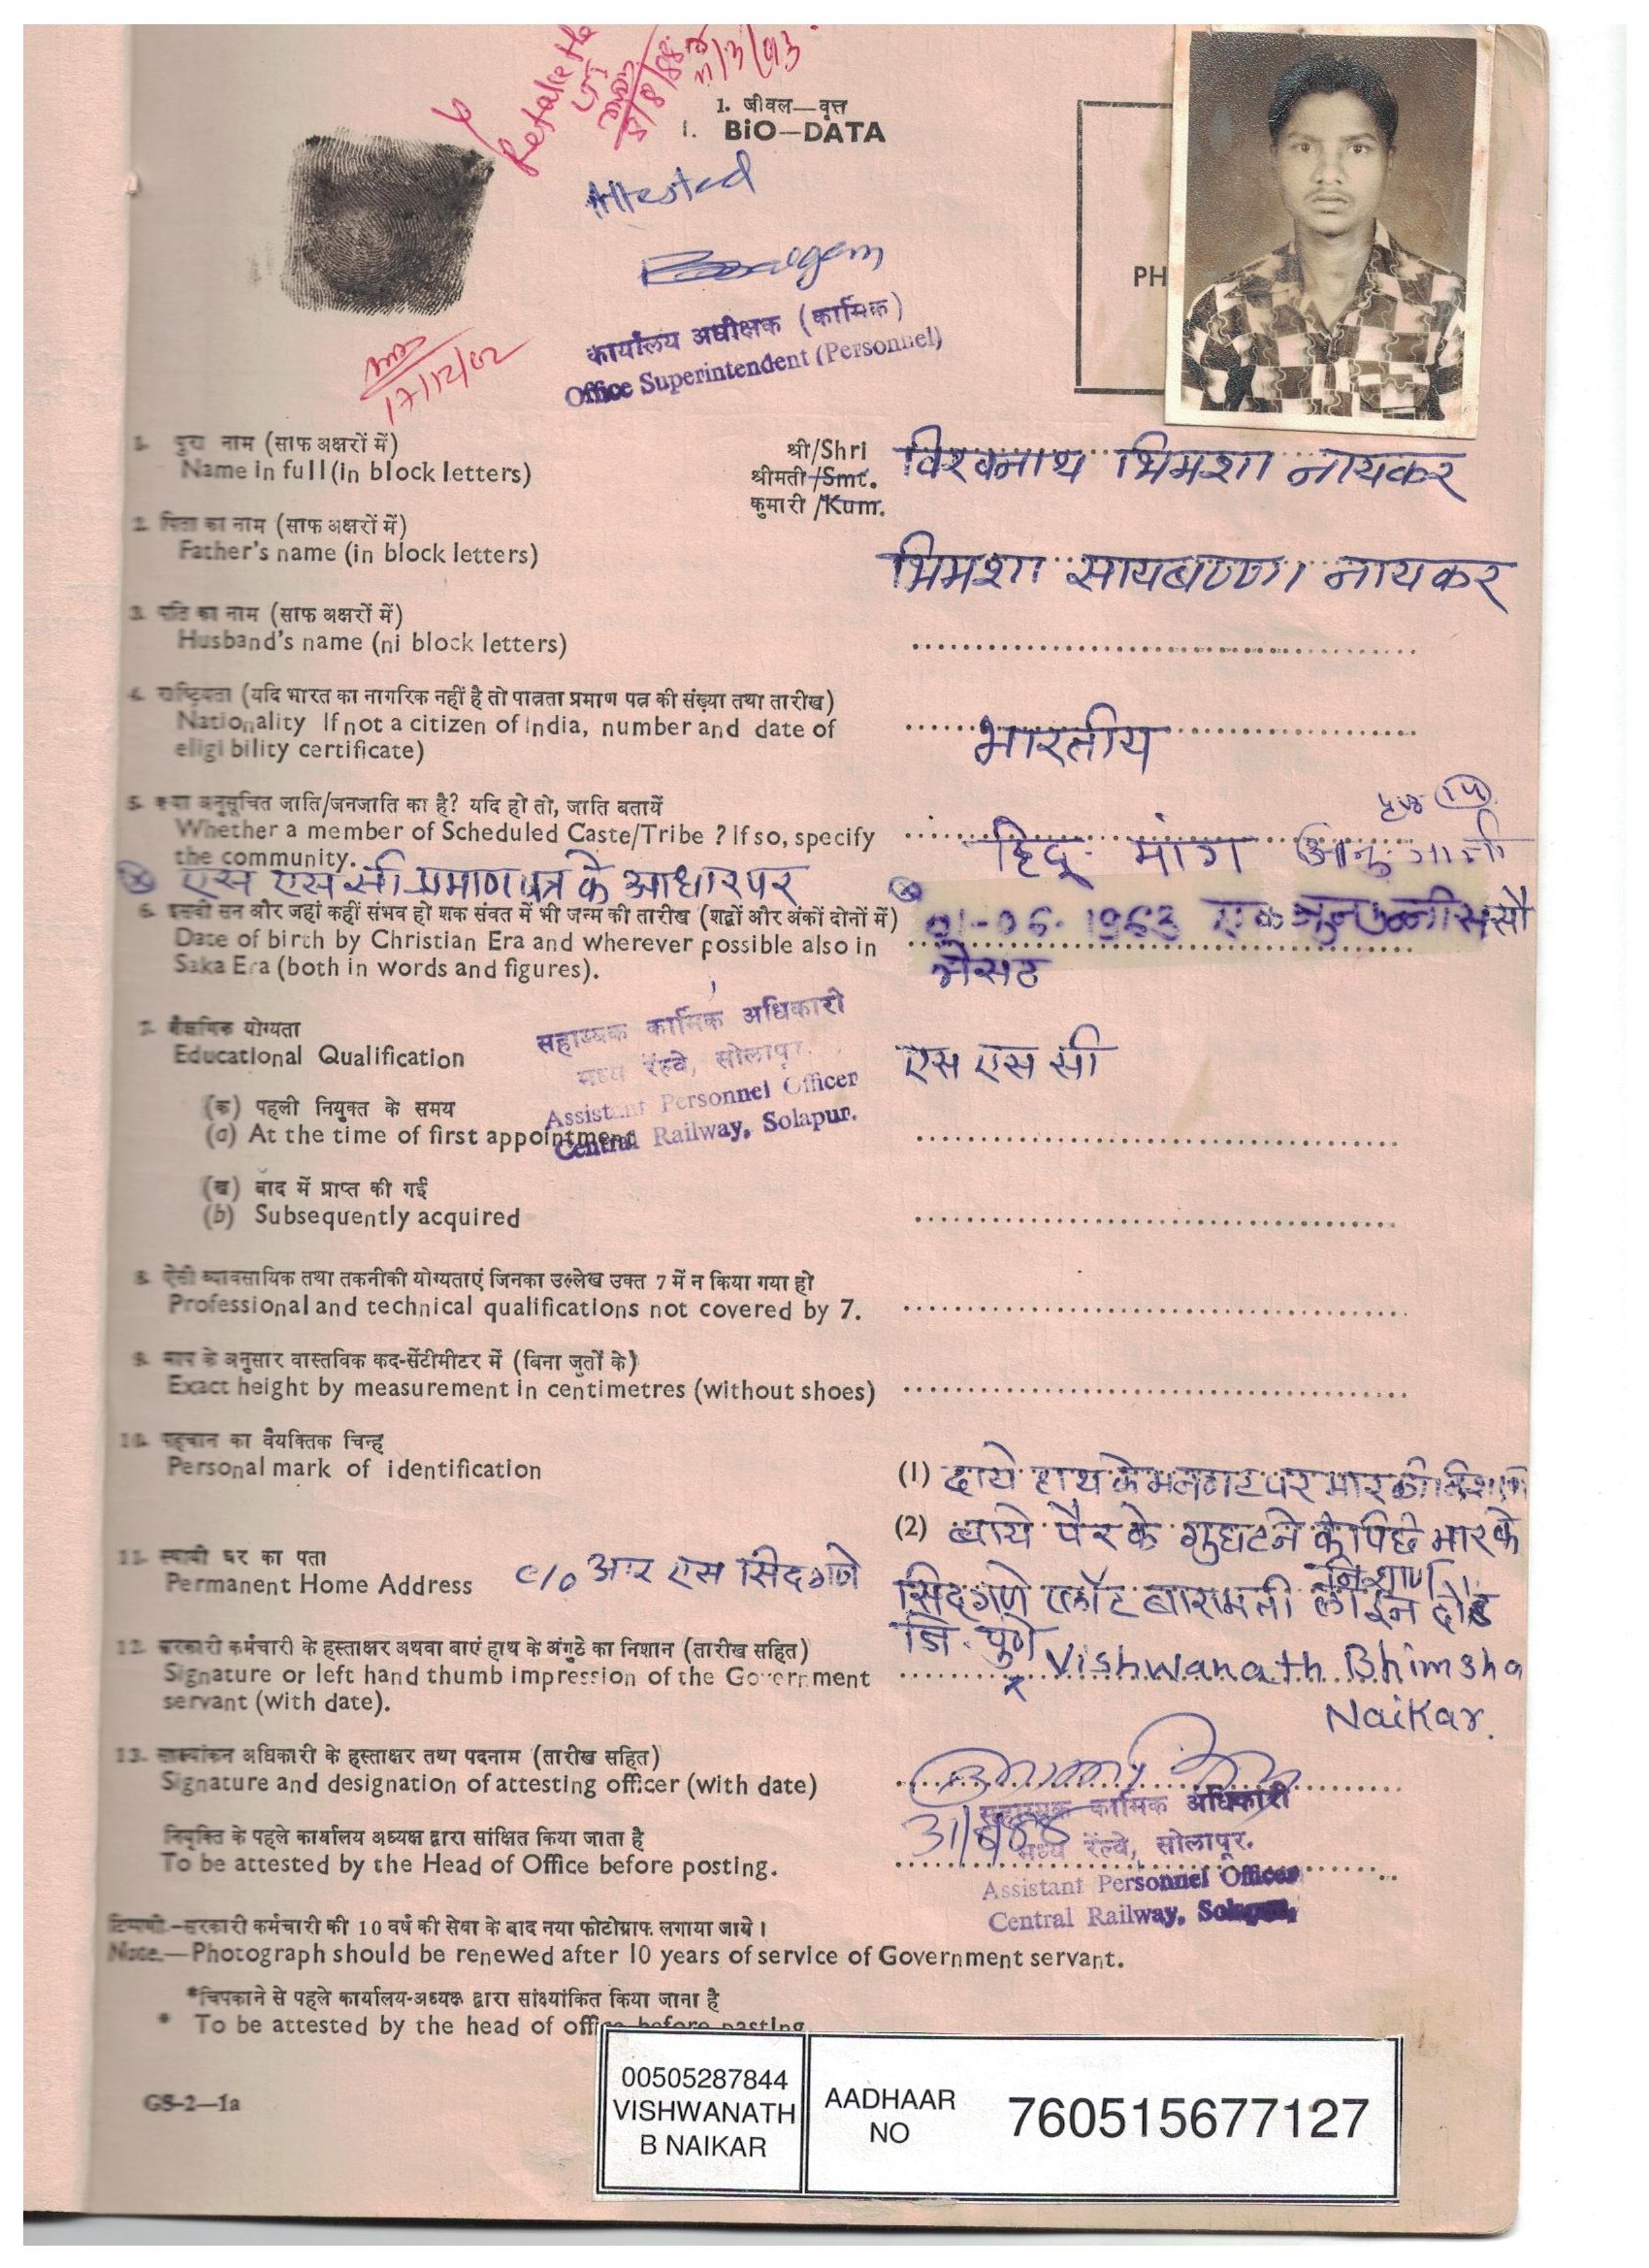 1. जीवल—वृत्त
I. BiO—DATA
8/8/88
Attested
कार्यालय अधीक्षक (कार्मिक)
Office Superintendent (Personnel)
17/12/02
PH
1. पुरा नाम (साफ अक्षरों में)
Name in full (in block letters)
श्री/Shri
श्रीमती/Smt.
कुमारी/Kum.
विश्वनाथ भिमशा नायकर
2. पिता का नाम (साफ अक्षरों में)
Father's name (in block letters)
भिमशा सायबण्णा नायकर
3. पति का नाम (साफ अक्षरों में)
Husband's name (ni block letters)
4. राष्ट्रियता (यदि भारत का नागरिक नहीं है तो पात्रता प्रमाण पत्र की संख्या तथा तारीख)
Nationality If not a citizen of India, number and date of
eligi bility certificate)
भारतीय
5. क्या अनुसूचित जाति/जनजाति का है? यदि हो तो, जाति बतायें
Whether a member of Scheduled Caste/Tribe ? If so, specify
the community.
हिंदू मांग
एस एस सी प्रमाणपत्र के आधारपर
6. इसवी सन और जहां कहीं संभव हो शक संवत में भी जन्म की तारीख (शब्दों और अंकों दोनों में)
Date of birth by Christian Era and wherever possible also in
Saka Era (both in words and figures).
01-06-1963 एक जून उन्नीस सौ
त्रेसठ
7. शैक्षणिक योग्यता
Educational Qualification
एस एस सी
सहाय्यक कार्मिक अधिकारी
मध्य रेल्वे, सोलापूर.
Assistant Personnel Officer
Central Railway, Solapur.
(क) पहली नियुक्त के समय
(a) At the time of first appointment
(ख) बाद में प्राप्त की गई
(b) Subsequently acquired
8. ऐसी व्यावसायिक तथा तकनीकी योग्यताएं जिनका उल्लेख उक्त 7 में न किया गया हो
Professional and technical qualifications not covered by 7.
9. माप के अनुसार वास्तविक कद-सेंटीमीटर में (बिना जुतों के)
Exact height by measurement in centimetres (without shoes)
10. पहचान का वैयक्तिक चिन्ह
Personal mark of identification
(1) दाये हाथ के मनगट पर मार की निशाण
(2) बाये पैर के गुघटने के पिछे मार के
निशाण
11. स्थायी घर का पता
Permanent Home Address
c/o आर एस सिदगणे
सिदगणे प्लॉट बारामती लाईन दौंड
जि. पुणे
12. सरकारी कर्मचारी के हस्ताक्षर अथवा बाएं हाथ के अंगुठे का निशान (तारीख सहित)
Signature or left hand thumb impression of the Government
servant (with date).
x Vishwanath Bhimsha
Naikar.
13. साक्ष्यांकन अधिकारी के हस्ताक्षर तथा पदनाम (तारीख सहित)
Signature and designation of attesting officer (with date)
सहाय्यक कार्मिक अधिकारी
मध्य रेल्वे, सोलापूर.
Assistant Personnel Officer
Central Railway, Solapur.
नियुक्ति के पहले कार्यालय अध्यक्ष द्वारा सांक्षित किया जाता है
To be attested by the Head of Office before posting.
टिप्पणी.—सरकारी कर्मचारी की 10 वर्ष की सेवा के बाद नया फोटोग्राफ लगाया जाये।
Note.—Photograph should be renewed after 10 years of service of Government servant.
*चिपकाने से पहले कार्यालय-अध्यक्ष द्वारा सांक्ष्यांकित किया जाना है
* To be attested by the head of office before pasting
GS-2—1a
00505287844
VISHWANATH
B NAIKAR
AADHAAR
NO
760515677127